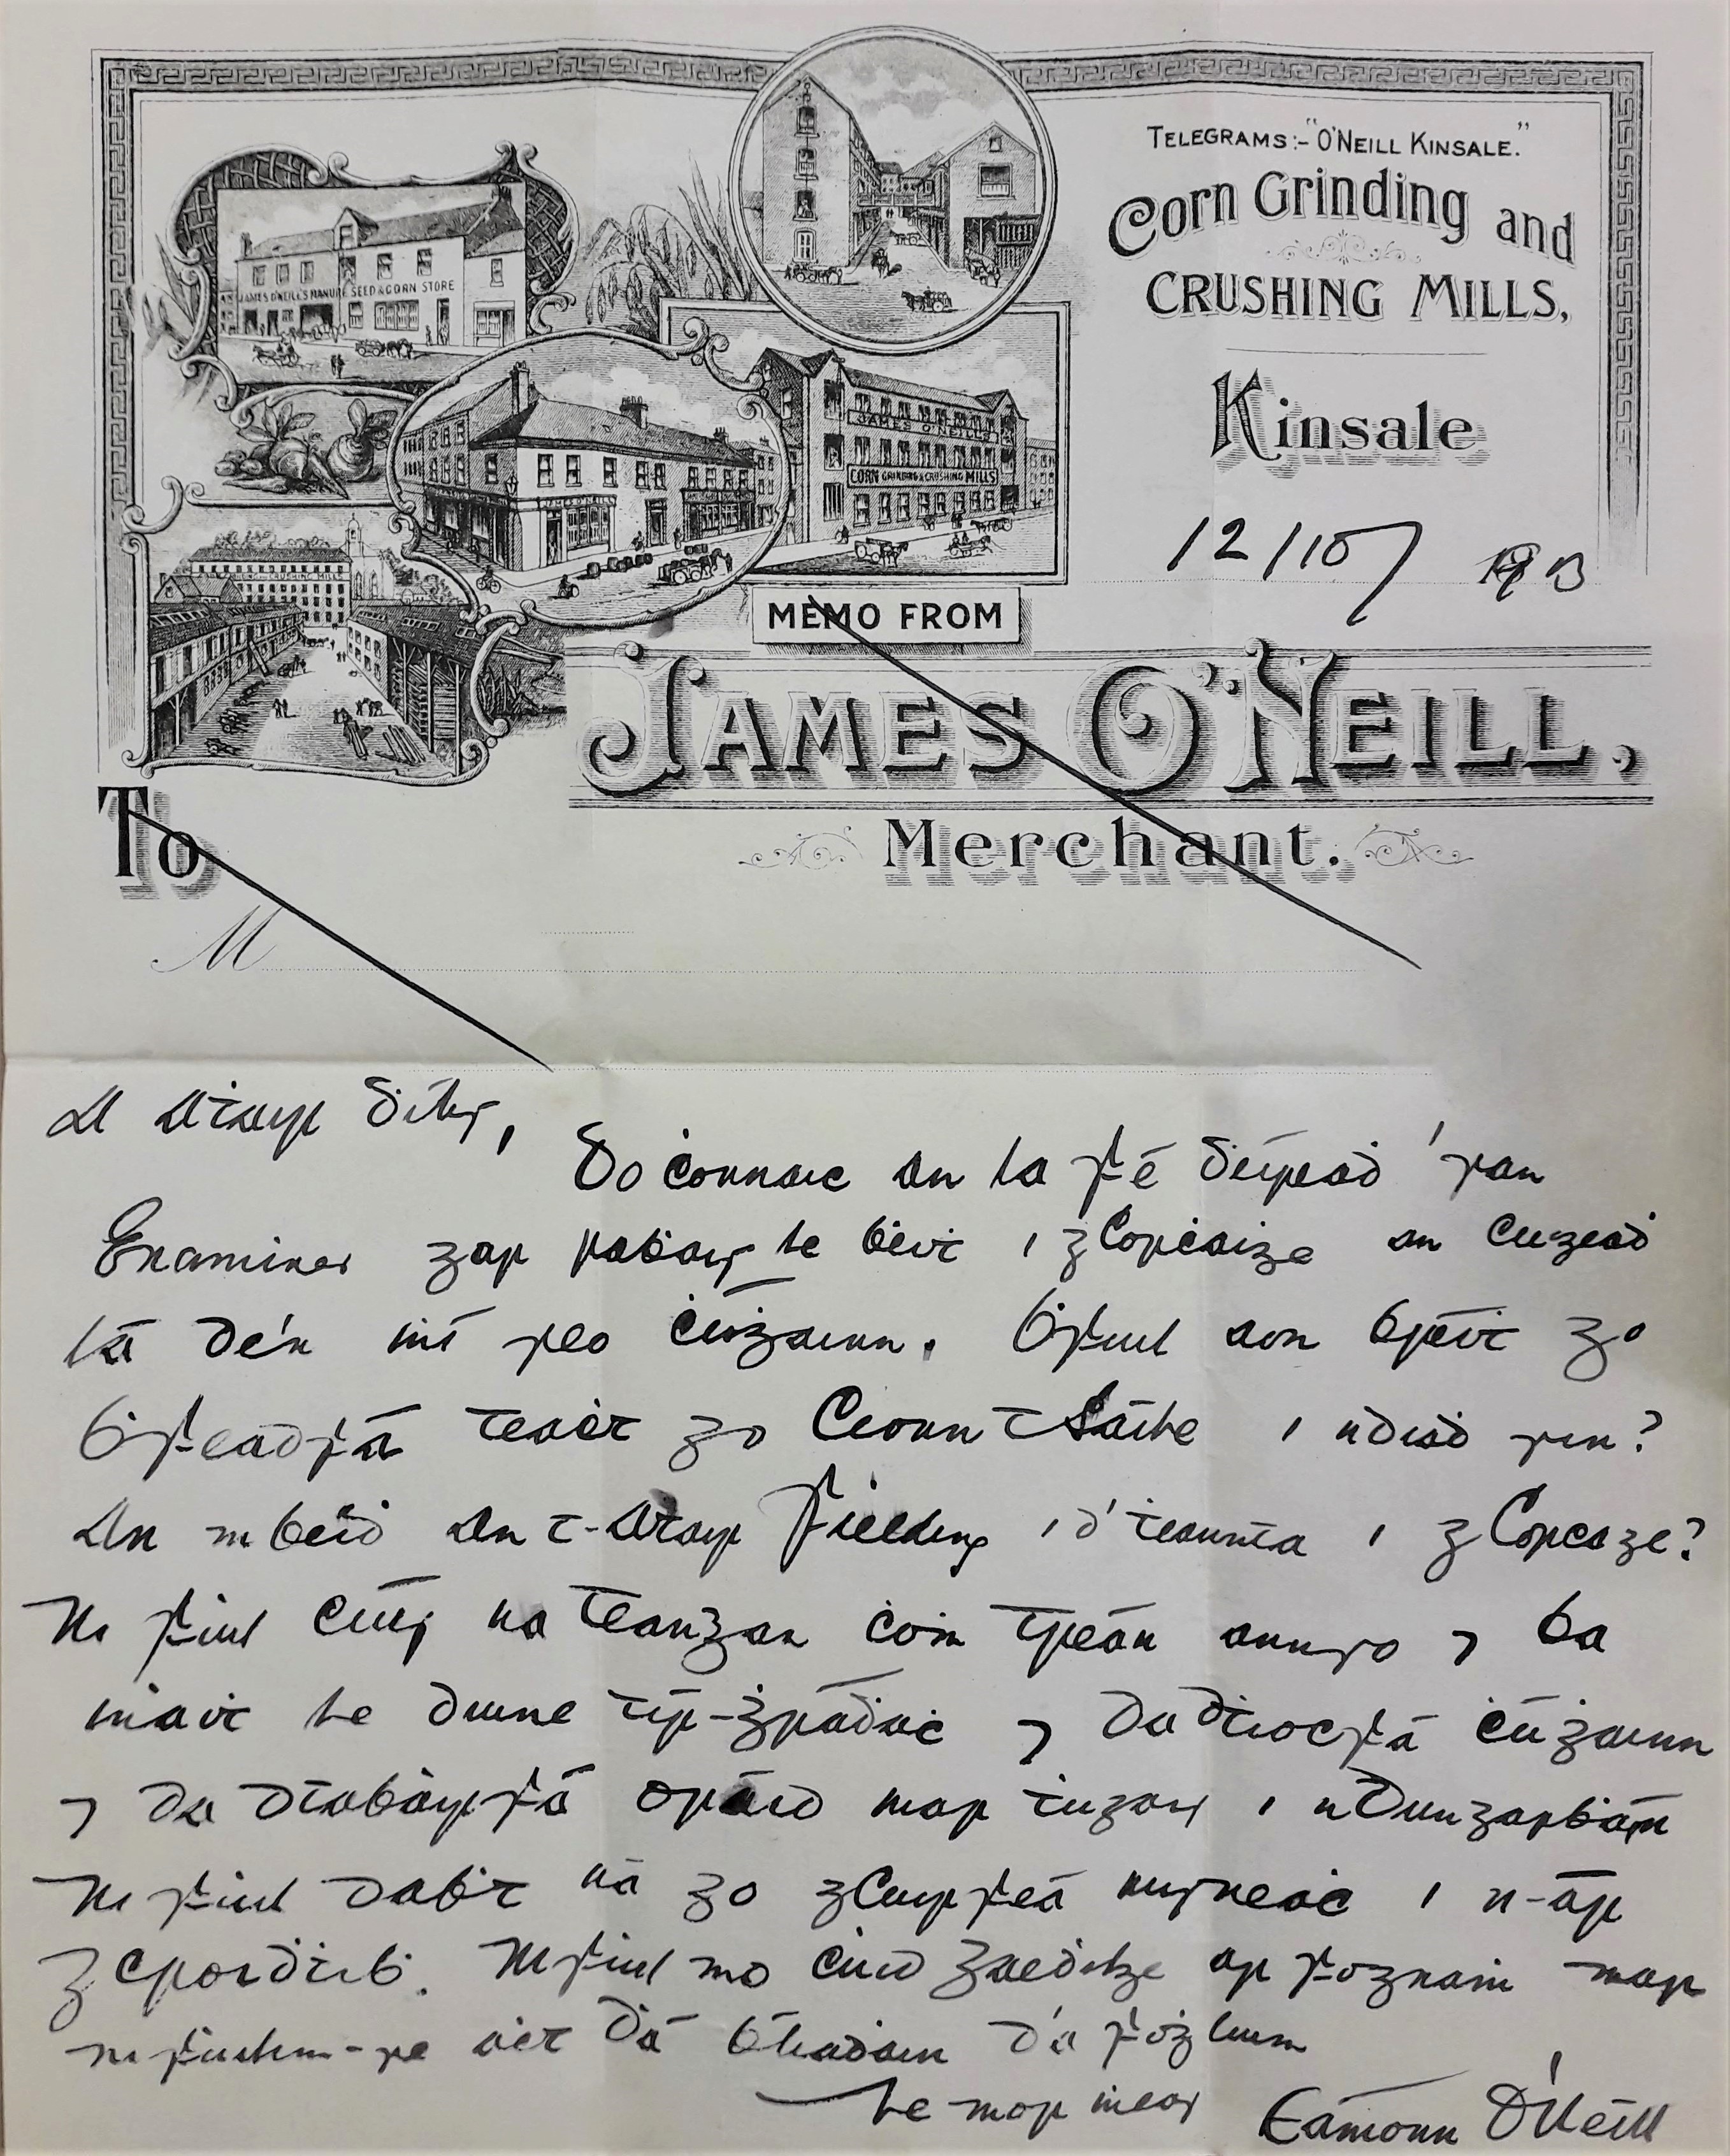 TELEGRAMS:- "O'NEILL KINSALE."
Corn Grinding and
CRUSHING MILLS,
Kinsale
12/10/ 1913
JAMES O'NEILL'S MANURE SEED & CORN STORE
JAMES O'NEILL'S
CORN GRINDING & CRUSHING MILLS
JAMES O'NEILL
CRUSHING MILLS
MEMO FROM
JAMES O'NEILL,
Merchant.
To
M
A Aṫair dílis,
Do ċonnaic an la fé ḋéireaḋ 'san
Examiner gar raḃais le ḃeiṫ i gCorcaiġe an cúigeaḋ
lá dé'n ṁí seo ċúġainn. Ḃfuil aon ḃreiṫ go
ḃfeadfá teaċt go Cionn tSáile i ndiaḋ sin?
An mbeiḋ an t-Aṫair Fielding id' ṫeannta i gCorcaġe?
Ní ḟuil cúis na teangan ċóṁ tréan annso ⁊ ba
ṁaiṫ le duine tír-ġráḋaċ ⁊ da dtiocfá ċúġainn
⁊ da dtaḃairfá oráid mar ṫugais i nDungarḃáin
ní ḟuil daḃt ná go gcuirfeá misneaċ i n-ár
gcroiḋṫiḃ. Ní ḟuil mo ċuid Gaeḋilge ar foġnaṁ mar
ní ḟuilim-se aċt dá ḃliaḋain d'á foġluim
Le mór ṁeas Eámonn O'Néill